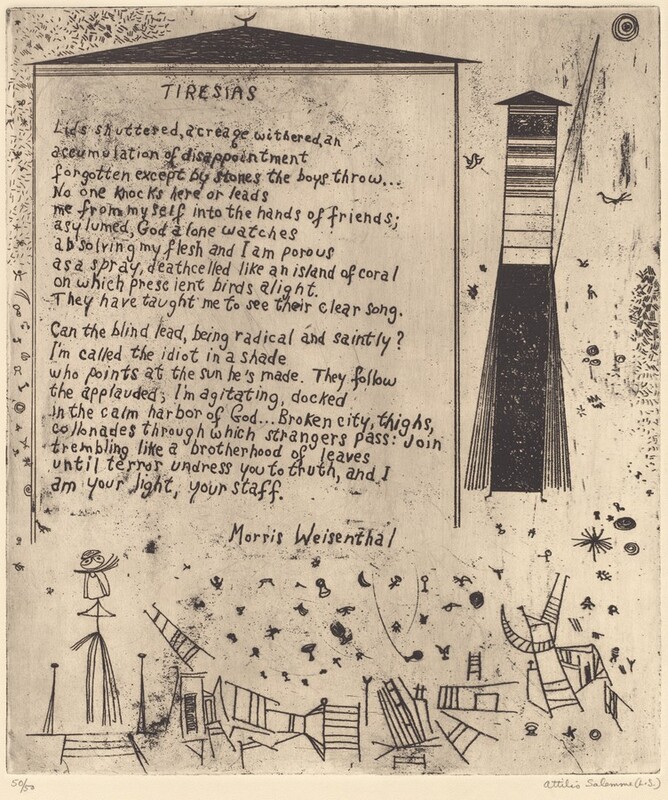 TIRESIAS
Lids shuttered, acreage withered, an
accumulation of disappointment
forgotten except by stones the boys throw...
No one knocks here or leads
me from myself into the hands of friends;
asylumed, God alone watches
absolving my flesh and I am porous
as a spray, deathcelled like an island of coral
on which prescient birds alight.
They have taught me to see their clear song.
Can the blind lead, being radical and saintly?
I'm called the idiot in a shade
who points at the sun he's made. They follow
the applauded; I'm agitating, docked
in the calm harbor of God... Broken city, thighs,
collonades through which strangers pass: Join
trembling like a brotherhood of leaves
until terror undress you to truth, and I
am your light, your staff.
Morris Weisenthal
50/50
Attilio Salemme (L.S.)